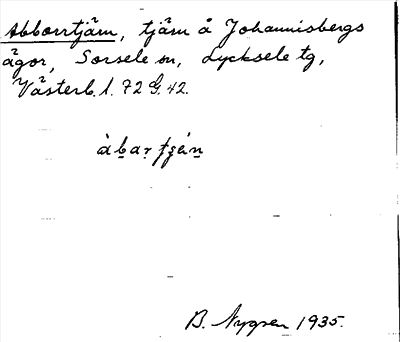 Abborrtjärn, tjärn å Johannisbergs
ägor, Sorsele sn, Lycksele tg,
Västerb. l. 72 G. 42.
B. Nygren 1935.